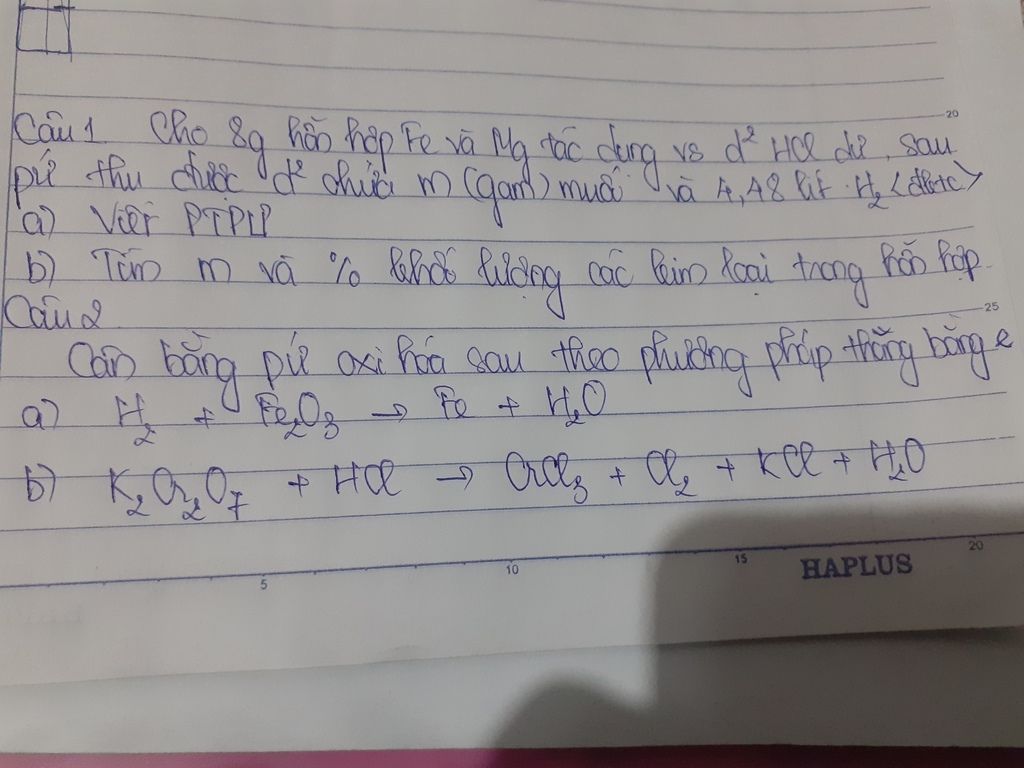 20
Câu 1 Cho 8g hỗn hợp Fe và Mg tác dụng vs d² HCl dư, sau
pứ thu được d² chứa m (gam) muối và 4,48 lít H₂ <đktc>
a) Viết PTPƯ
b) Tím m và % khối lượng các kim loại trong hỗn hợp
25
Câu 2
Cân bằng pứ oxi hóa sau theo phương pháp thăng bằng e
a) H₂ + Fe₂O₃ → Fe + H₂O
b) K₂Cr₂O₇ + HCl → CrCl₃ + Cl₂ + KCl + H₂O
5 10 15 HAPLUS 20